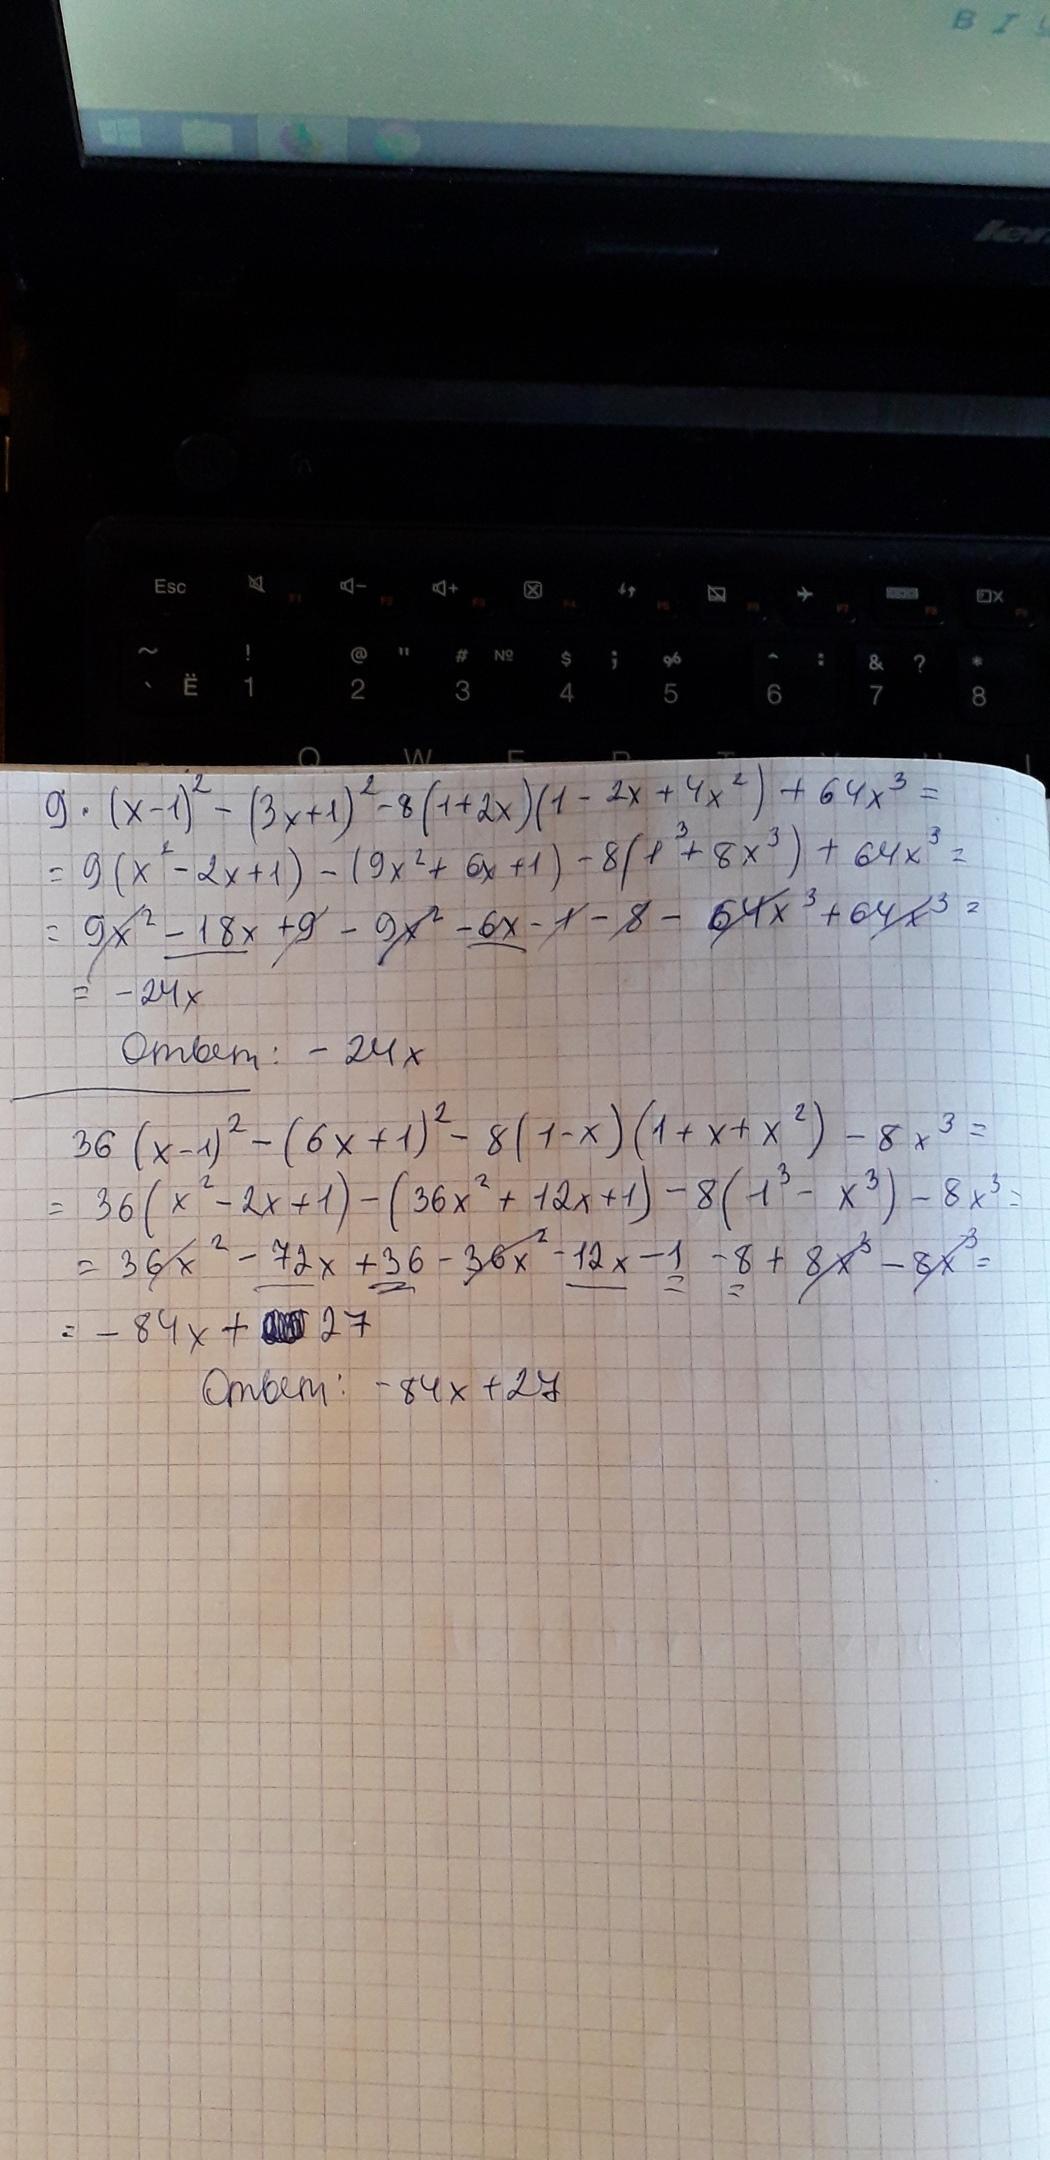 B I
len
Esc F1 F2 F3 F4 F5 F6 F7 F8 F9
~ ` Ё ! 1 @ " 2 # № 3 $ ; 4 % 5 ^ : 6 & ? 7 * 8
Q W E R T Y U I
9·(x-1)²-(3x+1)²-8(1+2x)(1-2x+4x²)+64x³=
=9(x²-2x+1)-(9x²+6x+1)-8(1³+8x³)+64x³=
=9x²-18x+9-9x²-6x-1-8-64x³+64x³=
=-24x
Ответ: -24x
36(x-1)²-(6x+1)²-8(1-x)(1+x+x²)-8x³=
=36(x²-2x+1)-(36x²+12x+1)-8(1³-x³)-8x³=
=36x²-72x+36-36x²-12x-1-8+8x³-8x³=
=-84x+27
Ответ: -84x+27